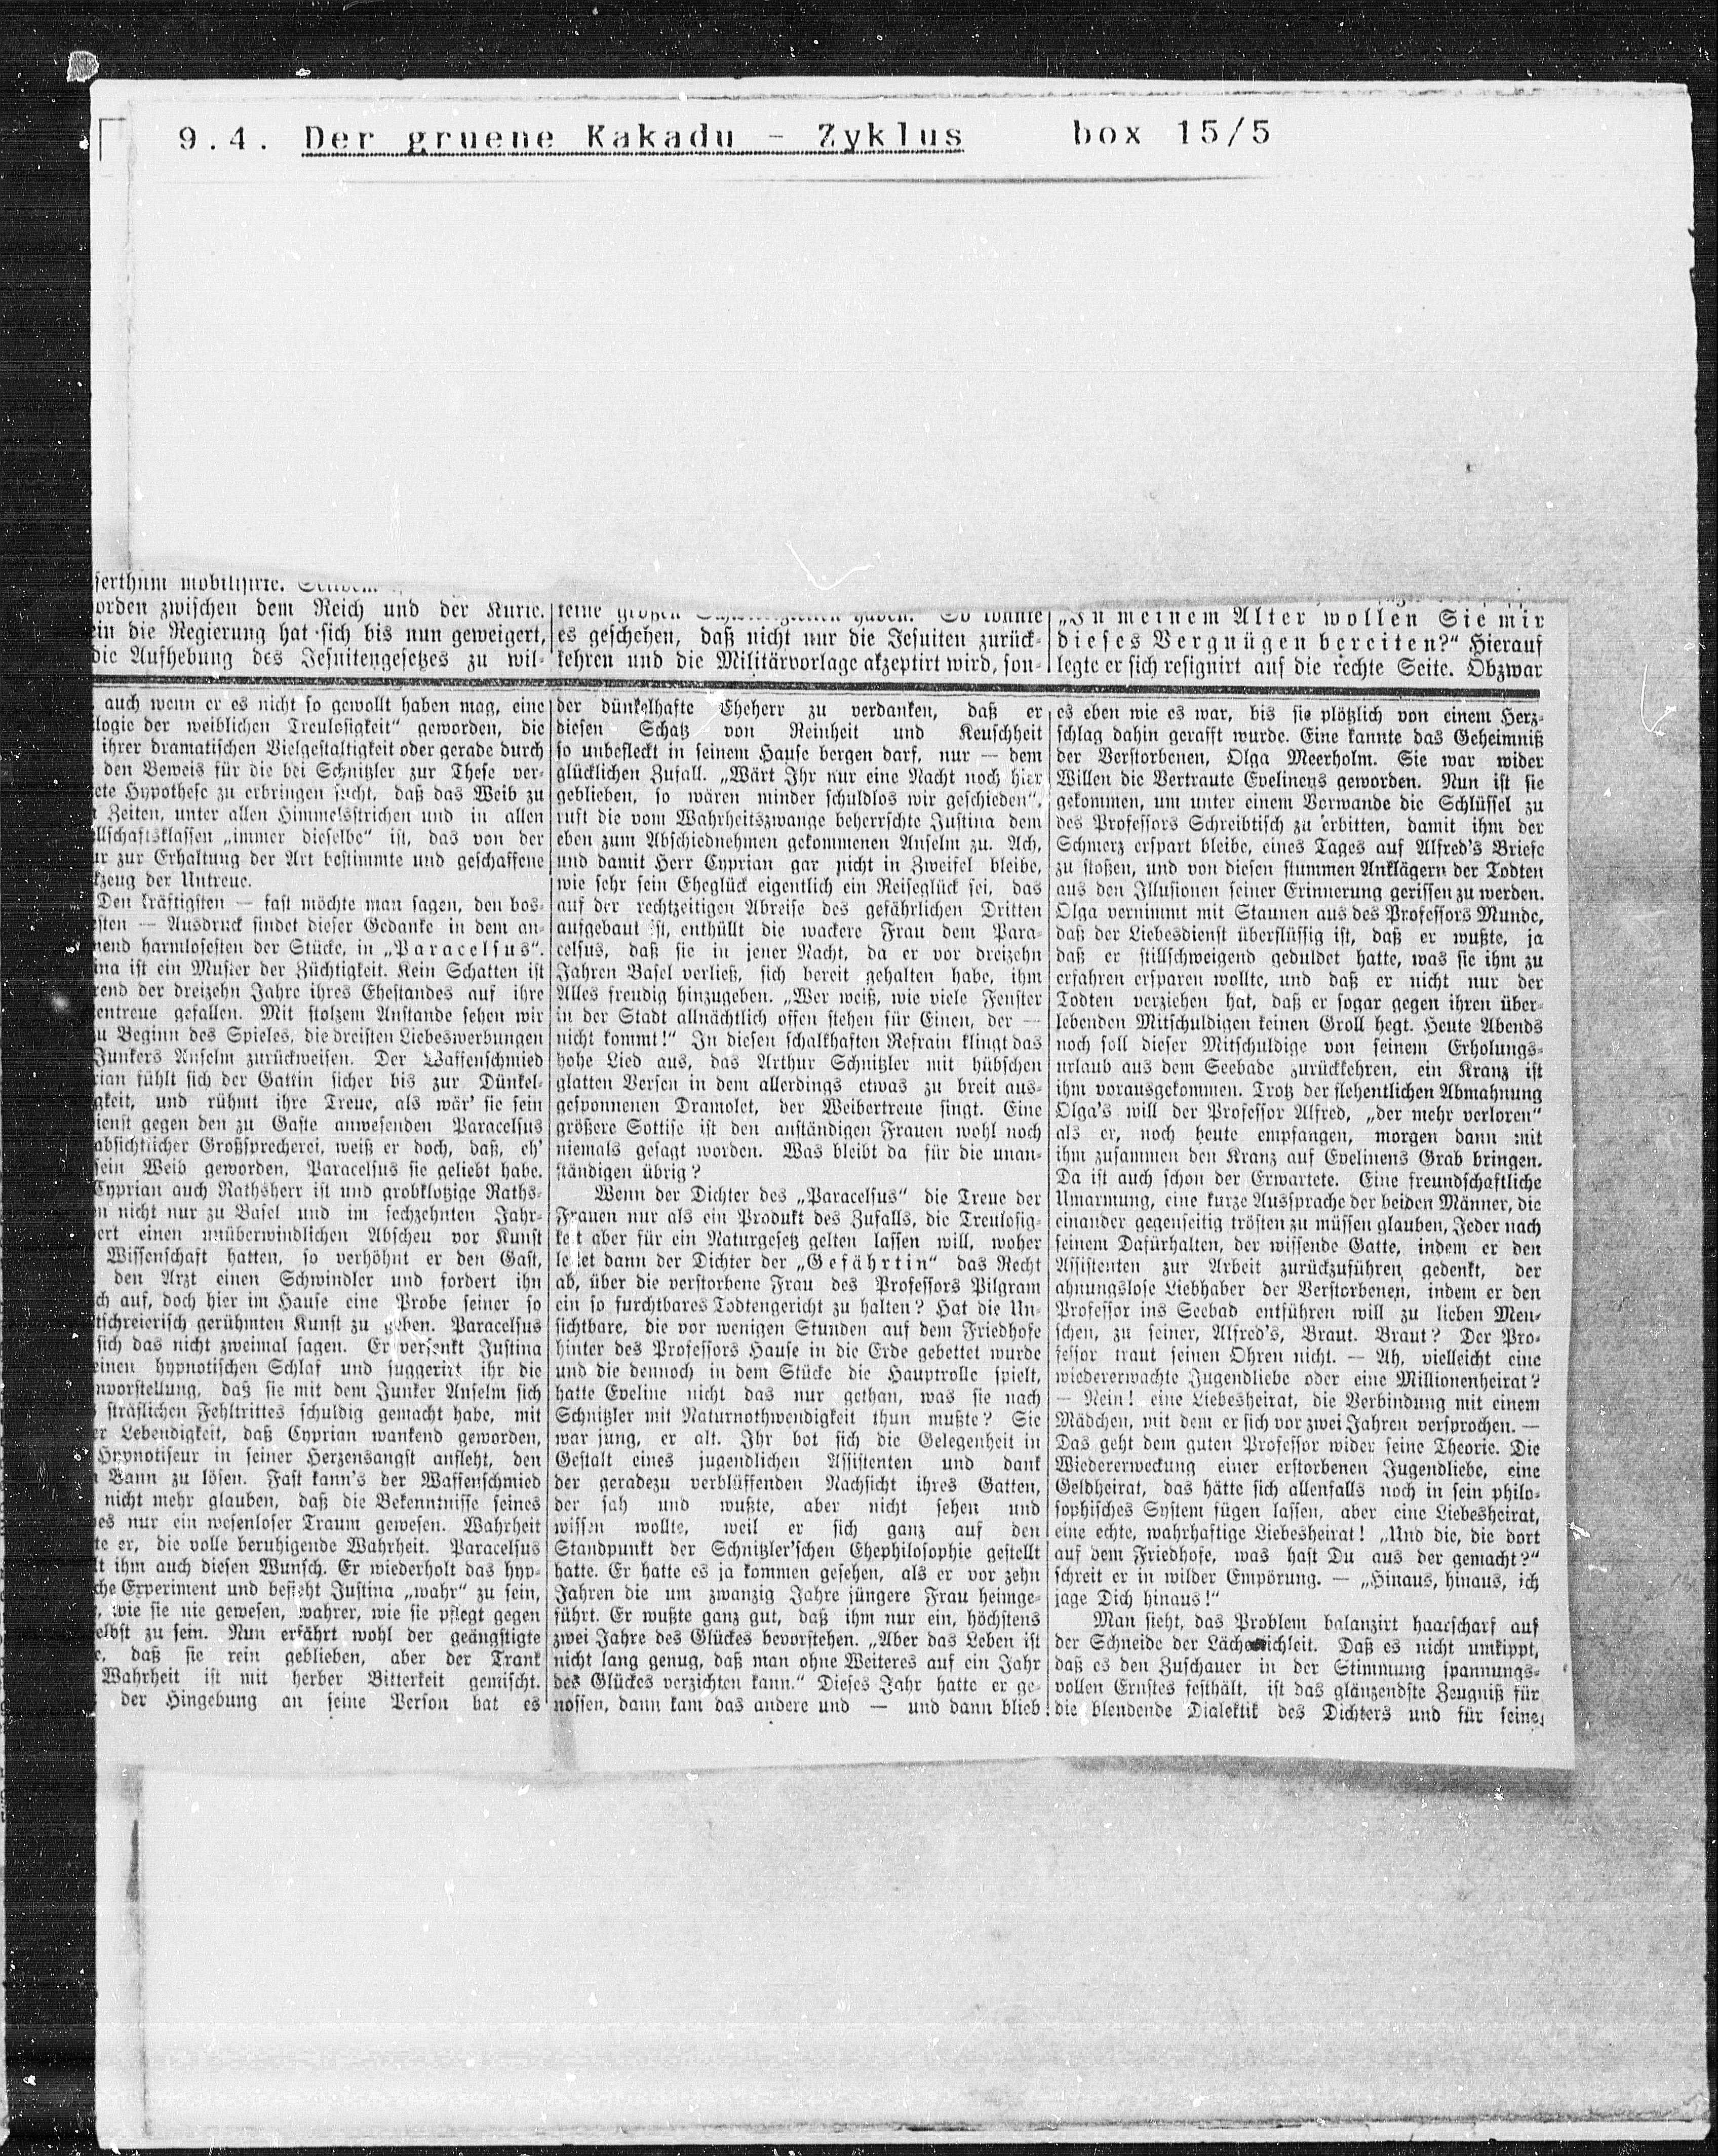 9.4. Der gruene Kakadu - Zyklus box 15/5
serthum mobilisirte.
orden zwischen dem Reich und der Kurie.
ein die Regierung hat sich bis nun geweigert,
die Aufhebung des Jesuitengesetzes zu wil-
keine großen Schwierigkeiten haben. So könnte
es geschehen, daß nicht nur die Jesuiten zurück-
kehren und die Militärvorlage akzeptirt wird, son-
„In meinem Alter wollen Sie mir
dieses Vergnügen bereiten?“ Hierauf
legte er sich resignirt auf die rechte Seite. Obzwar
auch wenn er es nicht so gewollt haben mag, eine
logie der weiblichen Treulosigkeit“ geworden, die
ihrer dramatischen Vielgestaltigkeit oder gerade durch
den Beweis für die bei Schnitzler zur These ver-
ete Hypothese zu erbringen sucht, daß das Weib zu
Zeiten, unter allen Himmelsstrichen und in allen
llschaftsklassen „immer dieselbe“ ist, das von der
ur zur Erhaltung der Art bestimmte und geschaffene
kzeug der Untreue.
Den kräftigsten — fast möchte man sagen, den bos-
esten — Ausdruck findet dieser Gedanke in dem an-
nend harmlosesten der Stücke, in „Paracelsus“.
ina ist ein Muster der Züchtigkeit. Kein Schatten ist
rend der dreizehn Jahre ihres Ehestandes auf ihre
entreue gefallen. Mit stolzem Anstande sehen wir
zu Beginn des Spieles, die dreisten Liebeswerbungen
Junkers Anselm zurückweisen. Der Waffenschmied
rian fühlt sich der Gattin sicher bis zur Dünkel-
gkeit, und rühmt ihre Treue, als wär' sie sein
ienst gegen den zu Gaste anwesenden Paracelsus
absichtlicher Großsprecherei, weiß er doch, daß, eh'
sein Weib geworden, Paracelsus sie geliebt habe.
Cyprian auch Rathsherr ist und grobklotzige Raths-
en nicht nur zu Basel und im sechzehnten Jahr-
ert einen unüberwindlichen Abscheu vor Kunst
Wissenschaft hatten, so verhöhnt er den Gast,
den Arzt einen Schwindler und fordert ihn
ch auf, doch hier im Hause eine Probe seiner so
tschreierisch gerühmten Kunst zu geben. Paracelsus
sich das nicht zweimal sagen. Er versenkt Justina
einen hypnotischen Schlaf und suggerirt ihr die
nvorstellung, daß sie mit dem Junker Anselm sich
sträflichen Fehltrittes schuldig gemacht habe, mit
er Lebendigkeit, daß Cyprian wankend geworden,
Hypnotiseur in seiner Herzensangst anfleht, den
Bann zu lösen. Fast kann's der Waffenschmied
nicht mehr glauben, daß die Bekenntnisse seines
es nur ein wesenloser Traum gewesen. Wahrheit
te er, die volle beruhigende Wahrheit. Paracelsus
lt ihm auch diesen Wunsch. Er wiederholt das hyp-
che Experiment und befieht Justina „wahr“ zu sein,
wie sie nie gewesen, wahrer, wie sie pflegt gegen
elbst zu sein. Nun erfährt wohl der geängstigte
e, daß sie rein geblieben, aber der Trank
Wahrheit ist mit herber Bitterkeit gemischt.
der Hingebung an seine Person hat es
der dünkelhafte Eheherr zu verdanken, daß er
diesen Schatz von Reinheit und Keuschheit
so unbefleckt in seinem Hause bergen darf, nur — dem
glücklichen Zufall. „Wärt Ihr nur eine Nacht noch hier
geblieben, so wären minder schuldlos wir geschieden“,
ruft die vom Wahrheitszwange beherrschte Justina dem
eben zum Abschiednehmen gekommenen Anselm zu. Ach,
und damit Herr Cyprian gar nicht in Zweifel bleibe,
wie sehr sein Eheglück eigentlich ein Reiseglück sei, das
auf der rechtzeitigen Abreise des gefährlichen Dritten
aufgebaut ist, enthüllt die wackere Frau dem Para-
celsus, daß sie in jener Nacht, da er vor dreizehn
Jahren Basel verließ, sich bereit gehalten habe, ihm
Alles freudig hinzugeben. „Wer weiß, wie viele Fenster
in der Stadt allnächtlich offen stehen für Einen, der —
nicht kommt!“ In diesen schalkhaften Refrain klingt das
hohe Lied aus, das Arthur Schnitzler mit hübschen
glatten Versen in dem allerdings etwas zu breit aus-
gesponnenen Dramolet, der Weibertreue singt. Eine
größere Sottise ist den anständigen Frauen wohl noch
niemals gesagt worden. Was bleibt da für die unan-
ständigen übrig?
Wenn der Dichter des „Paracelsus“ die Treue der
Frauen nur als ein Produkt des Zufalls, die Treulosig-
keit aber für ein Naturgesetz gelten lassen will, woher
leitet dann der Dichter der „Gefährtin“ das Recht
ab, über die verstorbene Frau des Professors Pilgram
ein so furchtbares Todtengericht zu halten? Hat die Un-
sichtbare, die vor wenigen Stunden auf dem Friedhofe
hinter des Professors Hause in die Erde gebettet wurde
und die dennoch in dem Stücke die Hauptrolle spielt,
hatte Eveline nicht das nur gethan, was sie nach
Schnitzler mit Naturnothwendigkeit thun mußte? Sie
war jung, er alt. Ihr bot sich die Gelegenheit in
Gestalt eines jugendlichen Assistenten und dank
der geradezu verblüffenden Nachsicht ihres Gatten,
der sah und wußte, aber nicht sehen und
wissen wollte, weil er sich ganz auf den
Standpunkt der Schnitzler'schen Ehephilosophie gestellt
hatte. Er hatte es ja kommen gesehen, als er vor zehn
Jahren die um zwanzig Jahre jüngere Frau heimge-
führt. Er wußte ganz gut, daß ihm nur ein, höchstens
zwei Jahre des Glückes bevorstehen. „Aber das Leben ist
nicht lang genug, daß man ohne Weiteres auf ein Jahr
des Glückes verzichten kann.“ Dieses Jahr hatte er ge-
nossen, dann kam das andere und — und dann blieb
es eben wie es war, bis sie plötzlich von einem Herz-
schlag dahin gerafft wurde. Eine kannte das Geheimniß
der Verstorbenen, Olga Meerholm. Sie war wider
Willen die Vertraute Evelinens geworden. Nun ist sie
gekommen, um unter einem Vorwande die Schlüssel zu
des Professors Schreibtisch zu erbitten, damit ihm der
Schmerz erspart bleibe, eines Tages auf Alfred's Briefe
zu stoßen, und von diesen stummen Anklägern der Todten
aus den Illusionen seiner Erinnerung gerissen zu werden.
Olga vernimmt mit Staunen aus des Professors Munde,
daß der Liebesdienst überflüssig ist, daß er wußte, ja
daß er stillschweigend geduldet hatte, was sie ihm zu
erfahren ersparen wollte, und daß er nicht nur der
Todten verziehen hat, daß er sogar gegen ihren über-
lebenden Mitschuldigen keinen Groll hegt. Heute Abends
noch soll dieser Mitschuldige von seinem Erholungs-
urlaub aus dem Seebade zurückkehren, ein Kranz ist
ihm vorausgekommen. Trotz der flehentlichen Abmahnung
Olga's will der Professor Alfred, „der mehr verloren“
als er, noch heute empfangen, morgen dann mit
ihm zusammen den Kranz auf Evelinens Grab bringen.
Da ist auch schon der Erwartete. Eine freundschaftliche
Umarmung, eine kurze Aussprache der beiden Männer, die
einander gegenseitig trösten zu müssen glauben, Jeder nach
seinem Dafürhalten, der wissende Gatte, indem er den
Assistenten zur Arbeit zurückzuführen gedenkt, der
ahnungslose Liebhaber der Verstorbenen, indem er den
Professor ins Seebad entführen will zu lieben Men-
schen, zu seiner, Alfred's, Braut. Braut? Der Pro-
fessor traut seinen Ohren nicht. — Ah, vielleicht eine
wiedererwachte Jugendliebe oder eine Millionenheirat?
— Nein! eine Liebesheirat, die Verbindung mit einem
Mädchen, mit dem er sich vor zwei Jahren versprochen. —
Das geht dem guten Professor wider seine Theorie. Die
Wiedererweckung einer erstorbenen Jugendliebe, eine
Geldheirat, das hätte sich allenfalls noch in sein philo-
sophisches System fügen lassen, aber eine Liebesheirat,
eine echte, wahrhaftige Liebesheirat! „Und die, die dort
auf dem Friedhofe, was hast Du aus der gemacht?“
schreit er in wilder Empörung. — „Hinaus, hinaus, ich
jage Dich hinaus!“
Man sieht, das Problem balanzirt haarscharf auf
der Schneide der Lächerlichkeit. Daß es nicht umkippt,
daß es den Zuschauer in der Stimmung spannungs-
vollen Ernstes festhält, ist das glänzendste Zeugniß für
die blendende Dialektik des Dichters und für seine